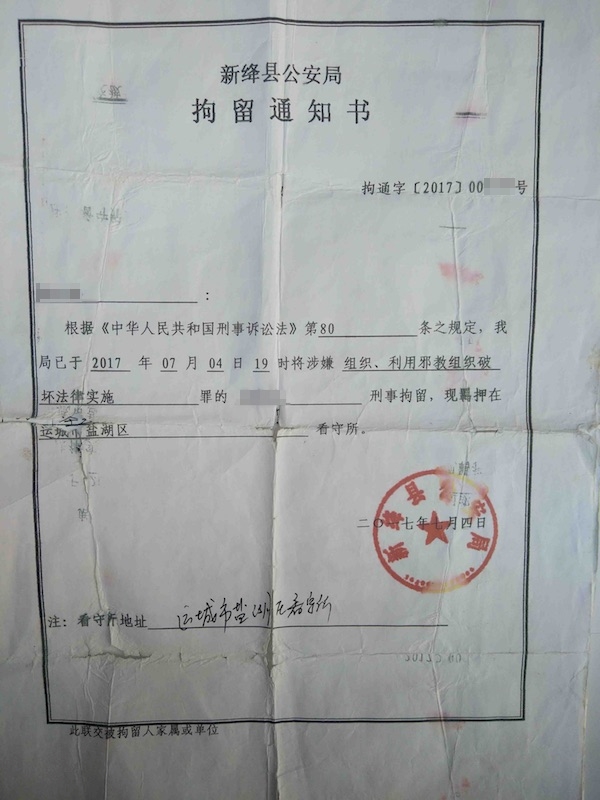 新绛县公安局
拘留通知书
拘通字〔2017〕00 号
：
根据《中华人民共和国刑事诉讼法》第80 条之规定，我
局已于 2017 年 07 月 04 日 19 时将涉嫌 组织、利用邪教组织破
坏法律实施 罪的 刑事拘留，现羁押在
运城市盐湖区 看守所。
新绛县公安局
二〇一七年七月四日
注：看守所地址 运城市盐湖区看守所
此联交被拘留人家属或单位